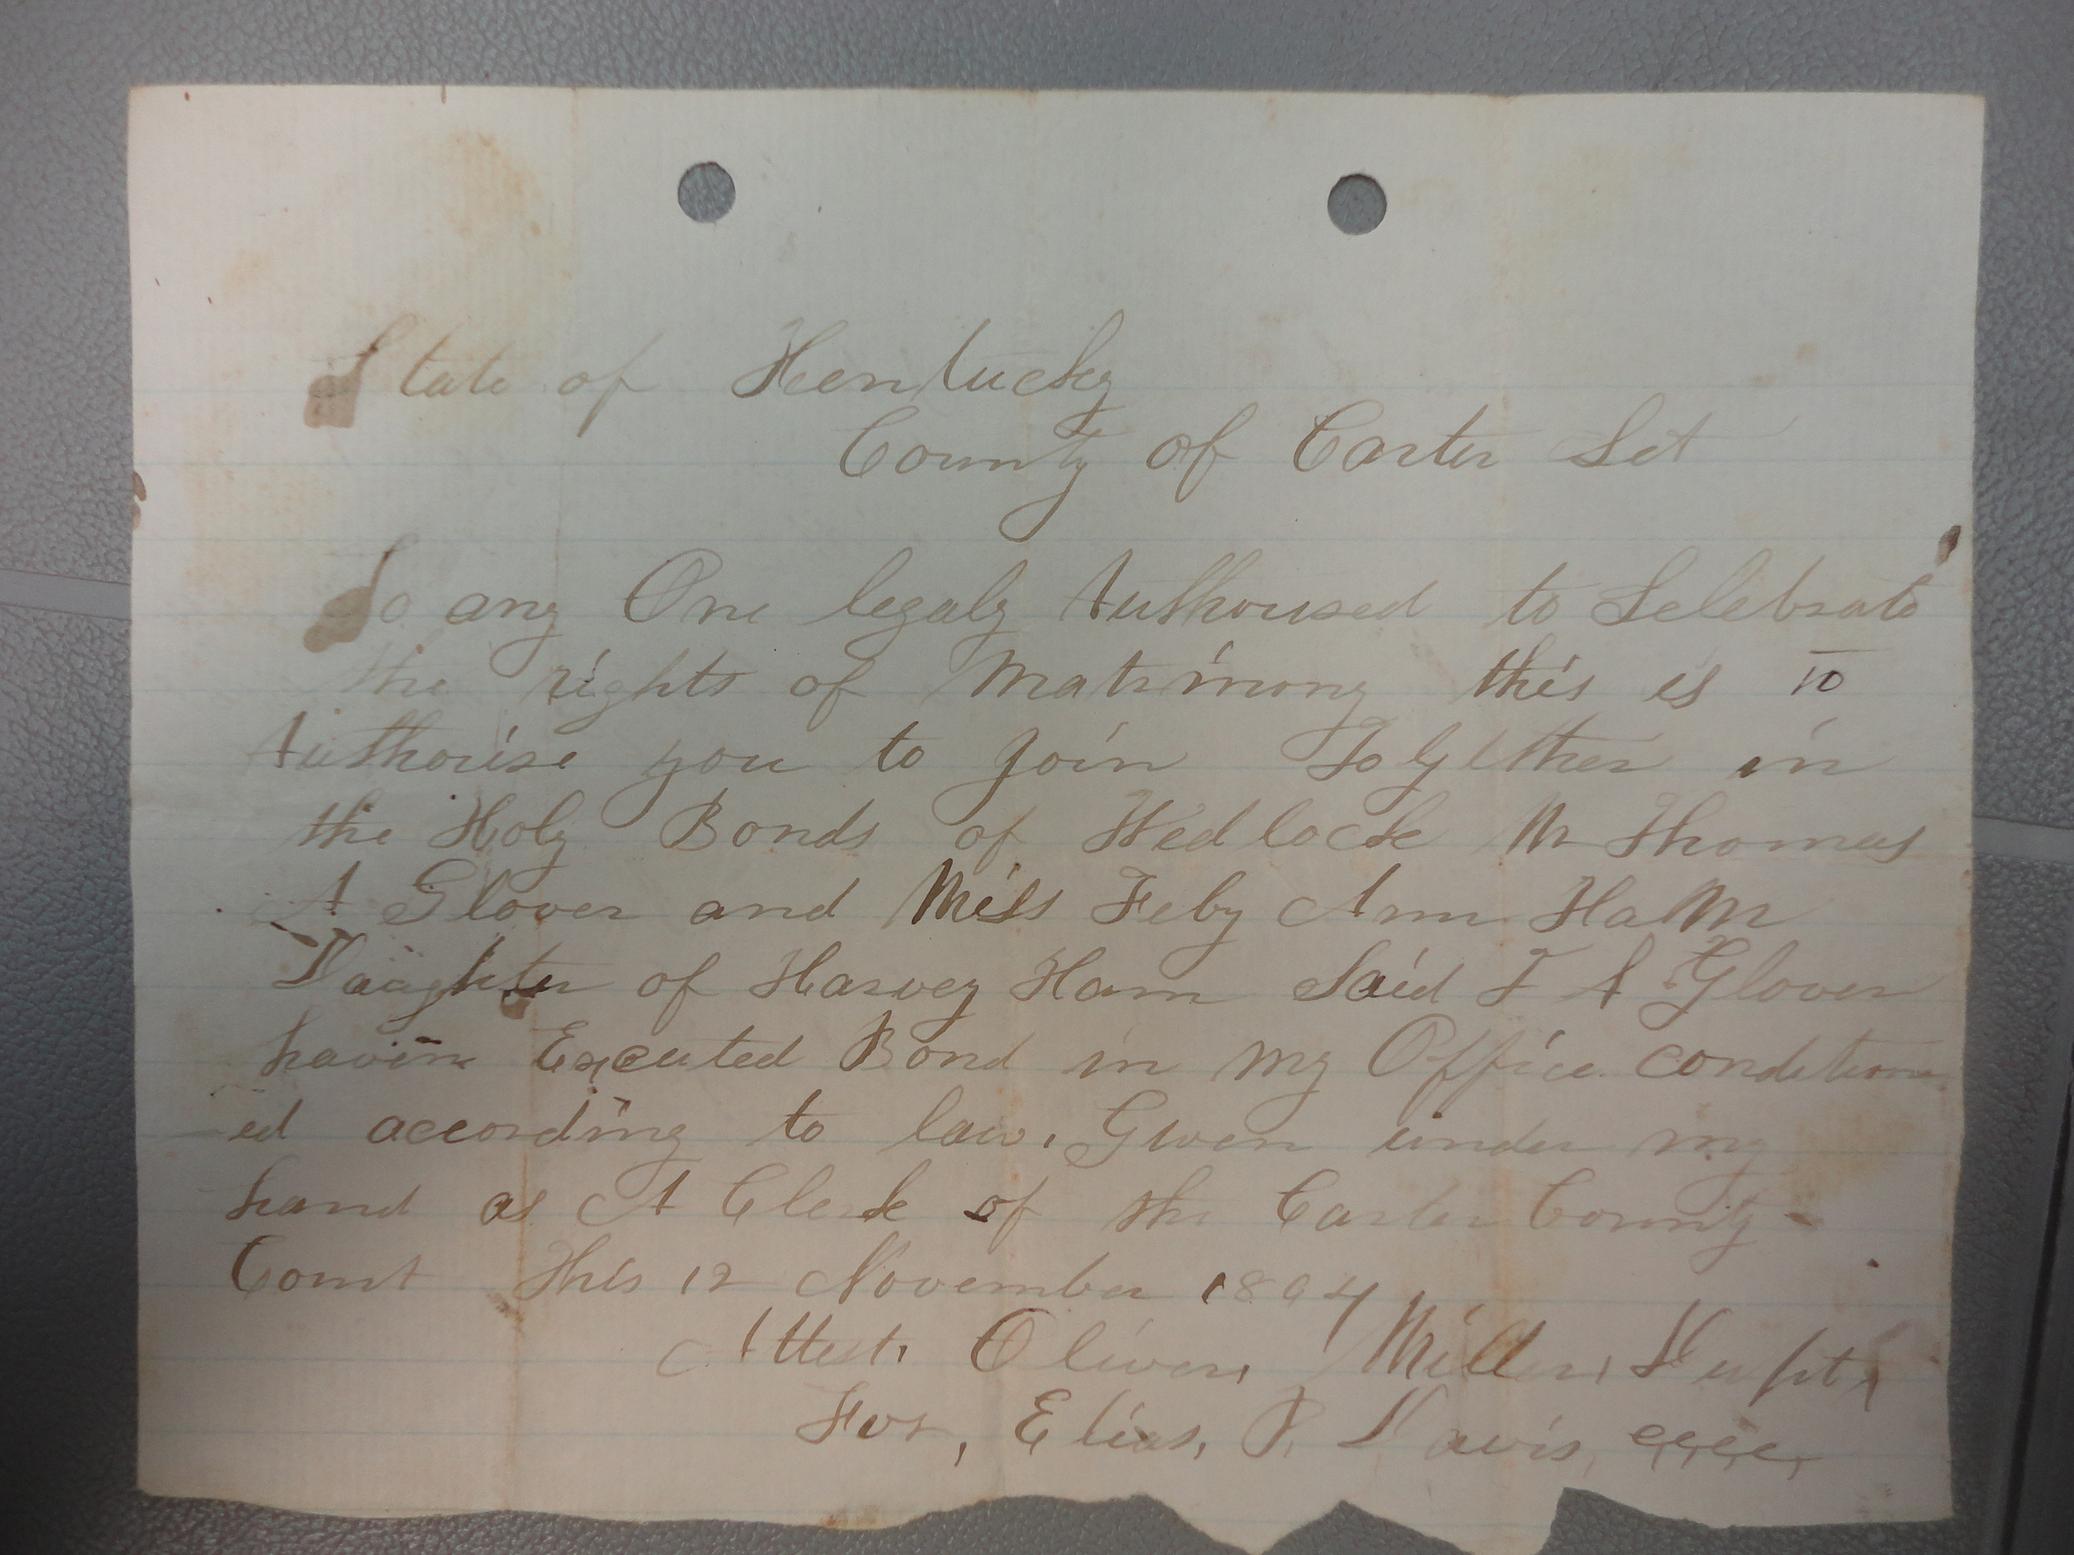 State of Kentucky
County of Carter Sct
To any One legaly Authorised to Selebrate
the rights of Matrimony this is to
Authorise you to join ToGether in
the Holy Bonds of Wedlock Mr Thomas
A Glover and Miss Feby Ann Ham
Daughter of Harvey Ham Said T A Glover
havin Executed Bond in my Office condition
ed according to law. Given under my
hand as A Clerk of the Carter County
Court This 12 November 1894
Attest. Oliver, Miller, Dupt,
For, Elias, P. Davis, c,c,c,c,